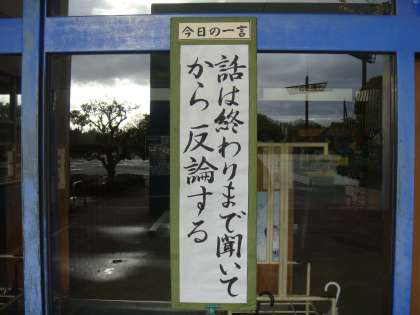 今日の一言
話は終わりまで聞いて
から反論する